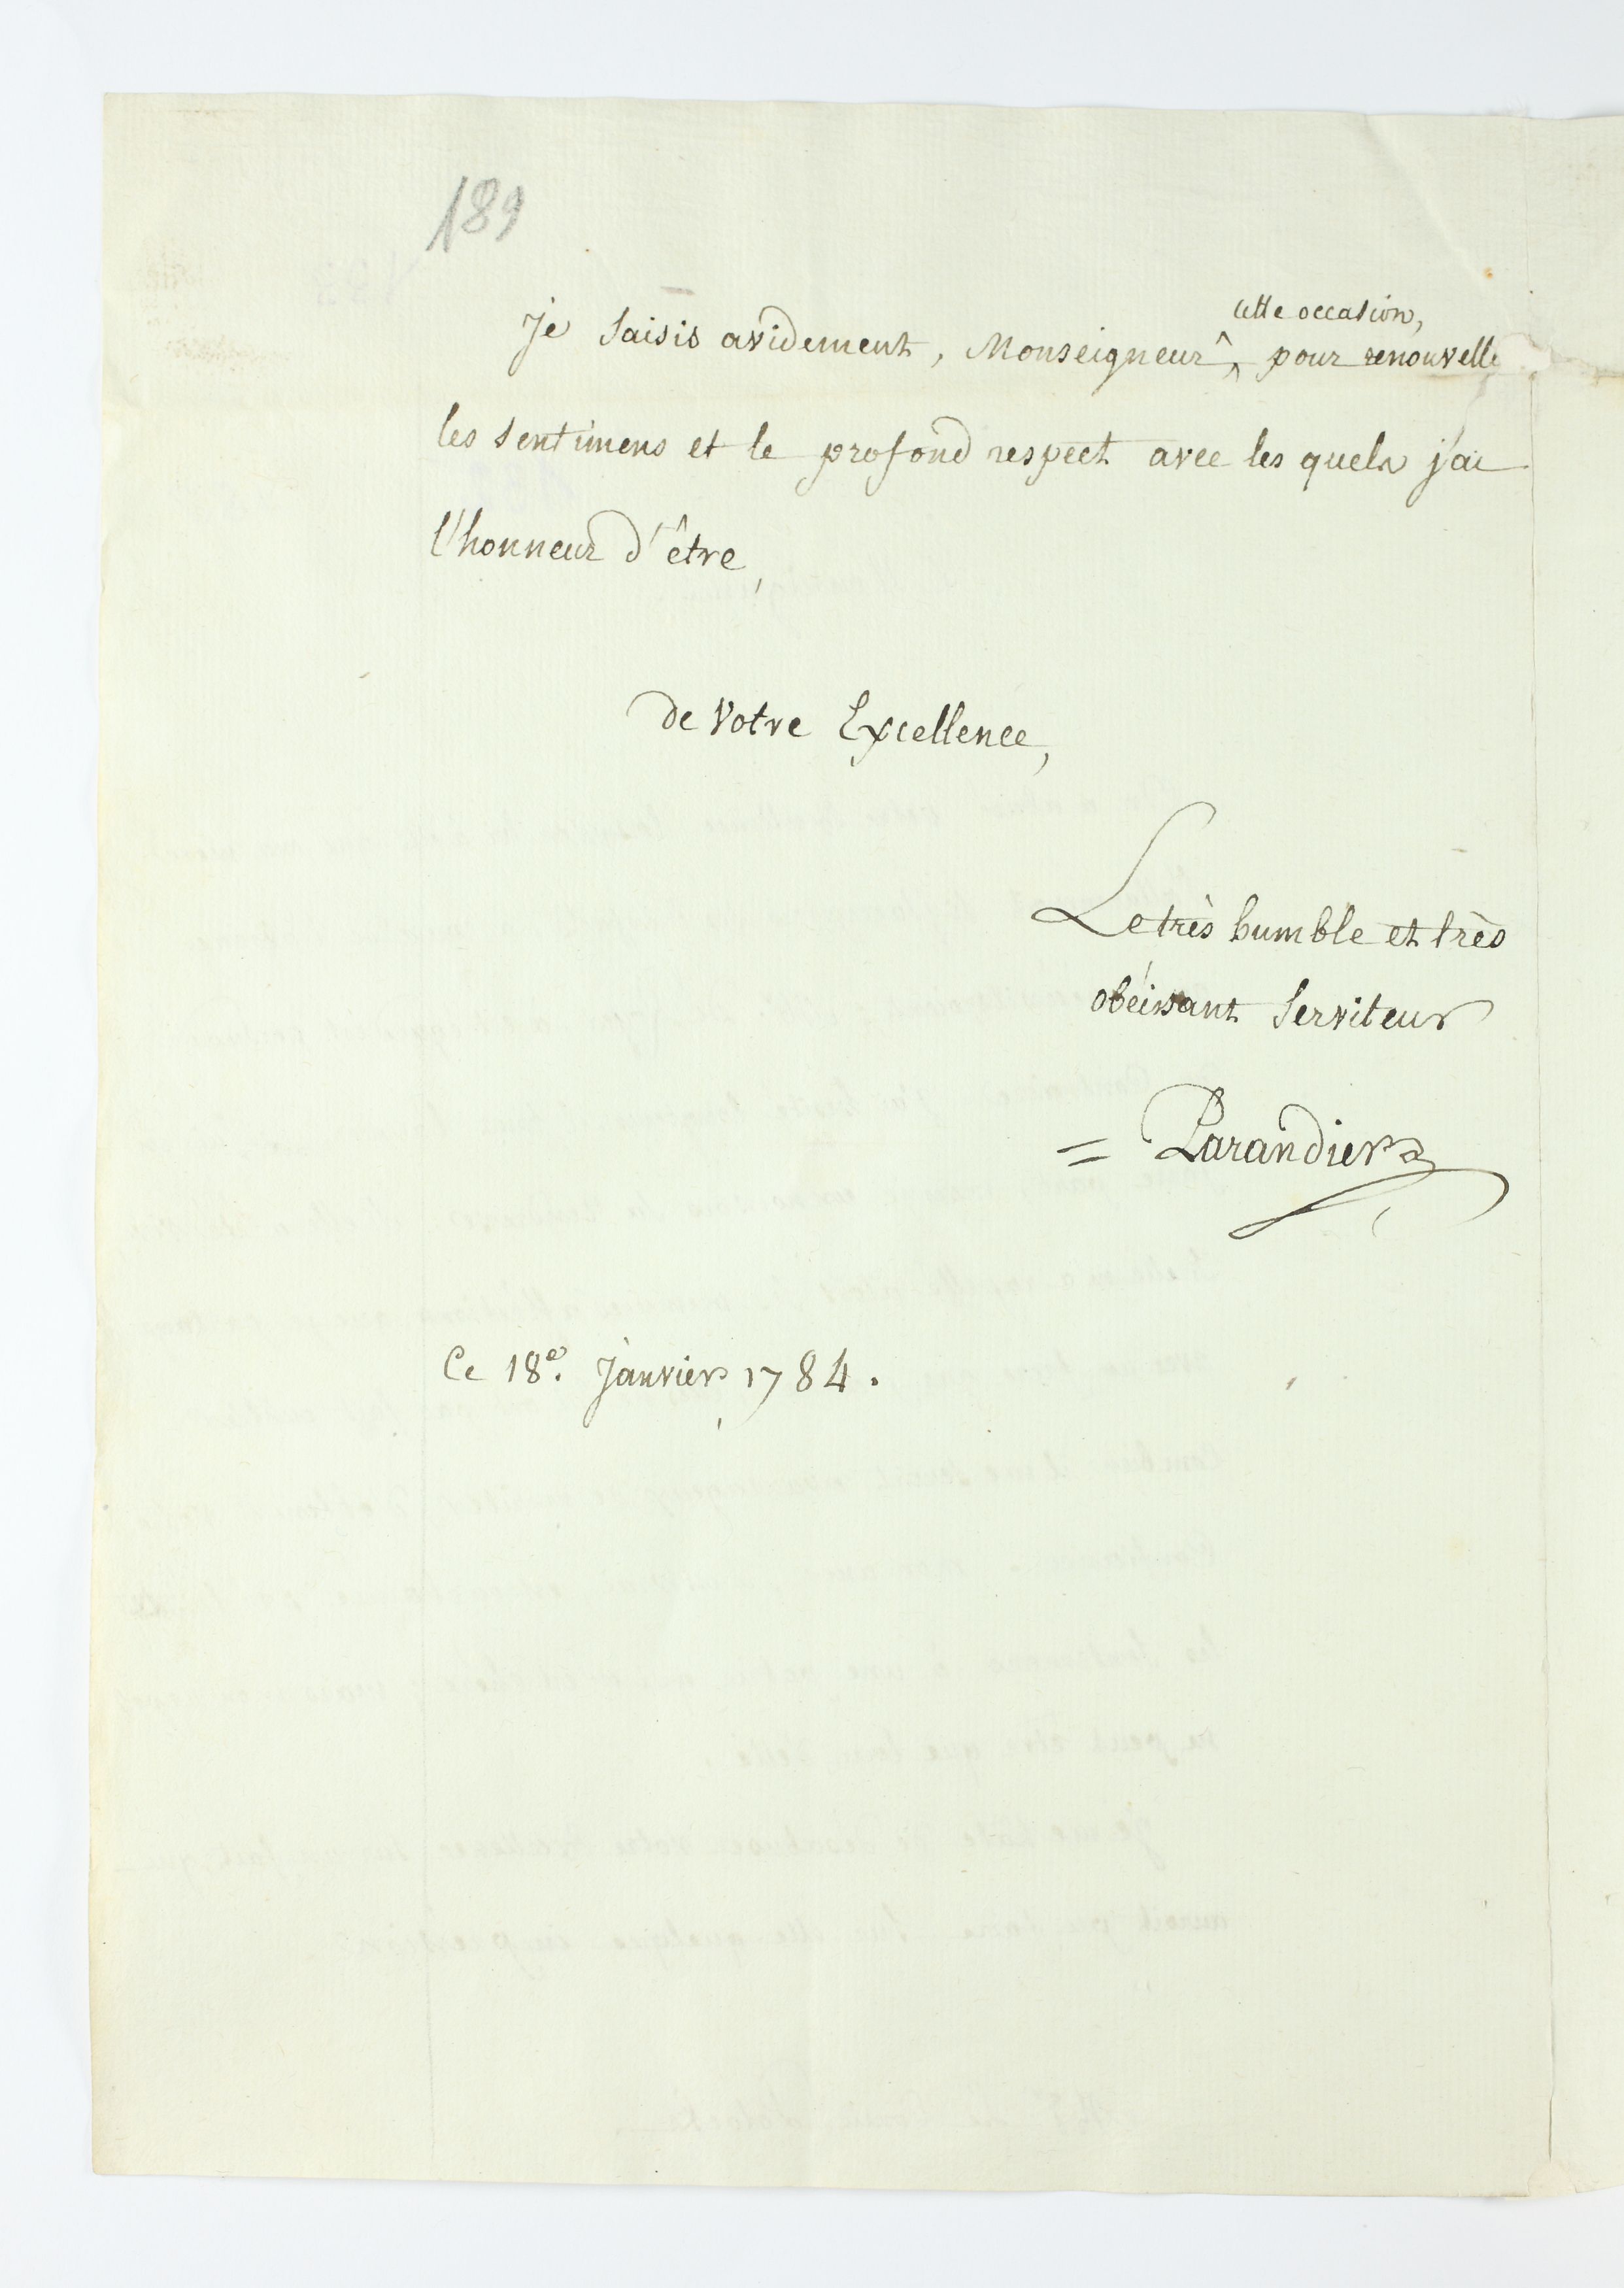 189
Je saisis avidement, Monseigneur, cette occasion, pour renouvelle
les sentimens et le profond respect avec les quels j'ai
l'honneur d'être,
de Votre Excellence,
Le très humble et très
obéissant Serviteur
= Parandier
Ce 18e. Janvier 1784.